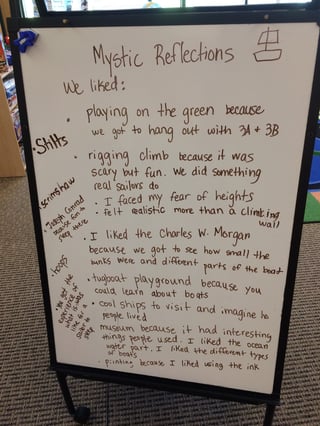 Mystic Reflections
We liked:
• playing on the green because
we got to hang out with 3A + 3B
• Stilts
• rigging climb because it was
scary but fun. We did something
real sailors do
• I faced my fear of heights
• felt realistic more than a climbing
wall
• scrimshaw
• Joseph Conrad
because fun
sleep there
• I liked the Charles W. Morgan
because we got to see how small the
bunks were and different parts of the boat
• hoops
• tugboat playground because you
could learn about boats
• cool ships to visit and imagine how
people lived
• you got the
experience of
what it was
like for a
sailor to
sleep
• museum because it had interesting
things people used. I liked the ocean
water part. I liked the different types
of boats
• printing because I liked using the ink